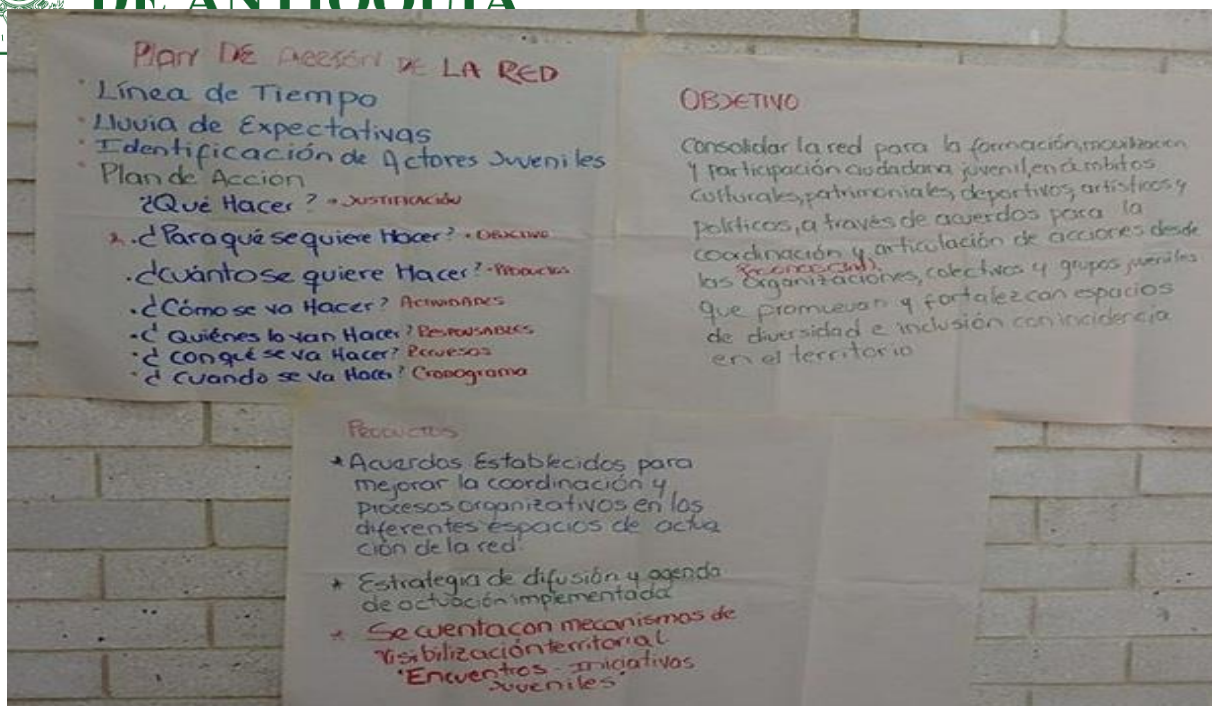 DE ANTIOQUIA
Plan DE Acción DE LA RED
· Línea de Tiempo
· Lluvia de Expectativas
· Identificación de Actores Juveniles
Plan de Acción
¿Qué Hacer? → JUSTIFICACIÓN
· ¿Para qué se quiere Hacer? · OBJETIVO
· ¿Cuánto se quiere Hacer? - Productos
· ¿Cómo se va Hacer? Actividades
· ¿Quiénes lo van Hacer? Responsables
· ¿Con qué se va Hacer? Recursos
· ¿Cuando se va Hacer? Cronograma
OBJETIVO
Consolidar la red para la formación, movilización
y participación ciudadana juvenil, en ámbitos
culturales, patrimoniales, deportivos, artísticos y
políticos, a través de acuerdos para la
coordinación y articulación de acciones desde
las organizaciones, colectivos y grupos juveniles
que promuevan y fortalezcan espacios
de diversidad e inclusión con incidencia
en el territorio
Productos
* Acuerdos Establecidos para
mejorar la coordinación y
procesos organizativos en los
diferentes espacios de actua
ción de la red.
* Estrategia de difusión y agenda
de actuación implementada
* Se cuenta con mecanismos de
visibilización territorial
"Encuentros - Iniciativas
Juveniles"